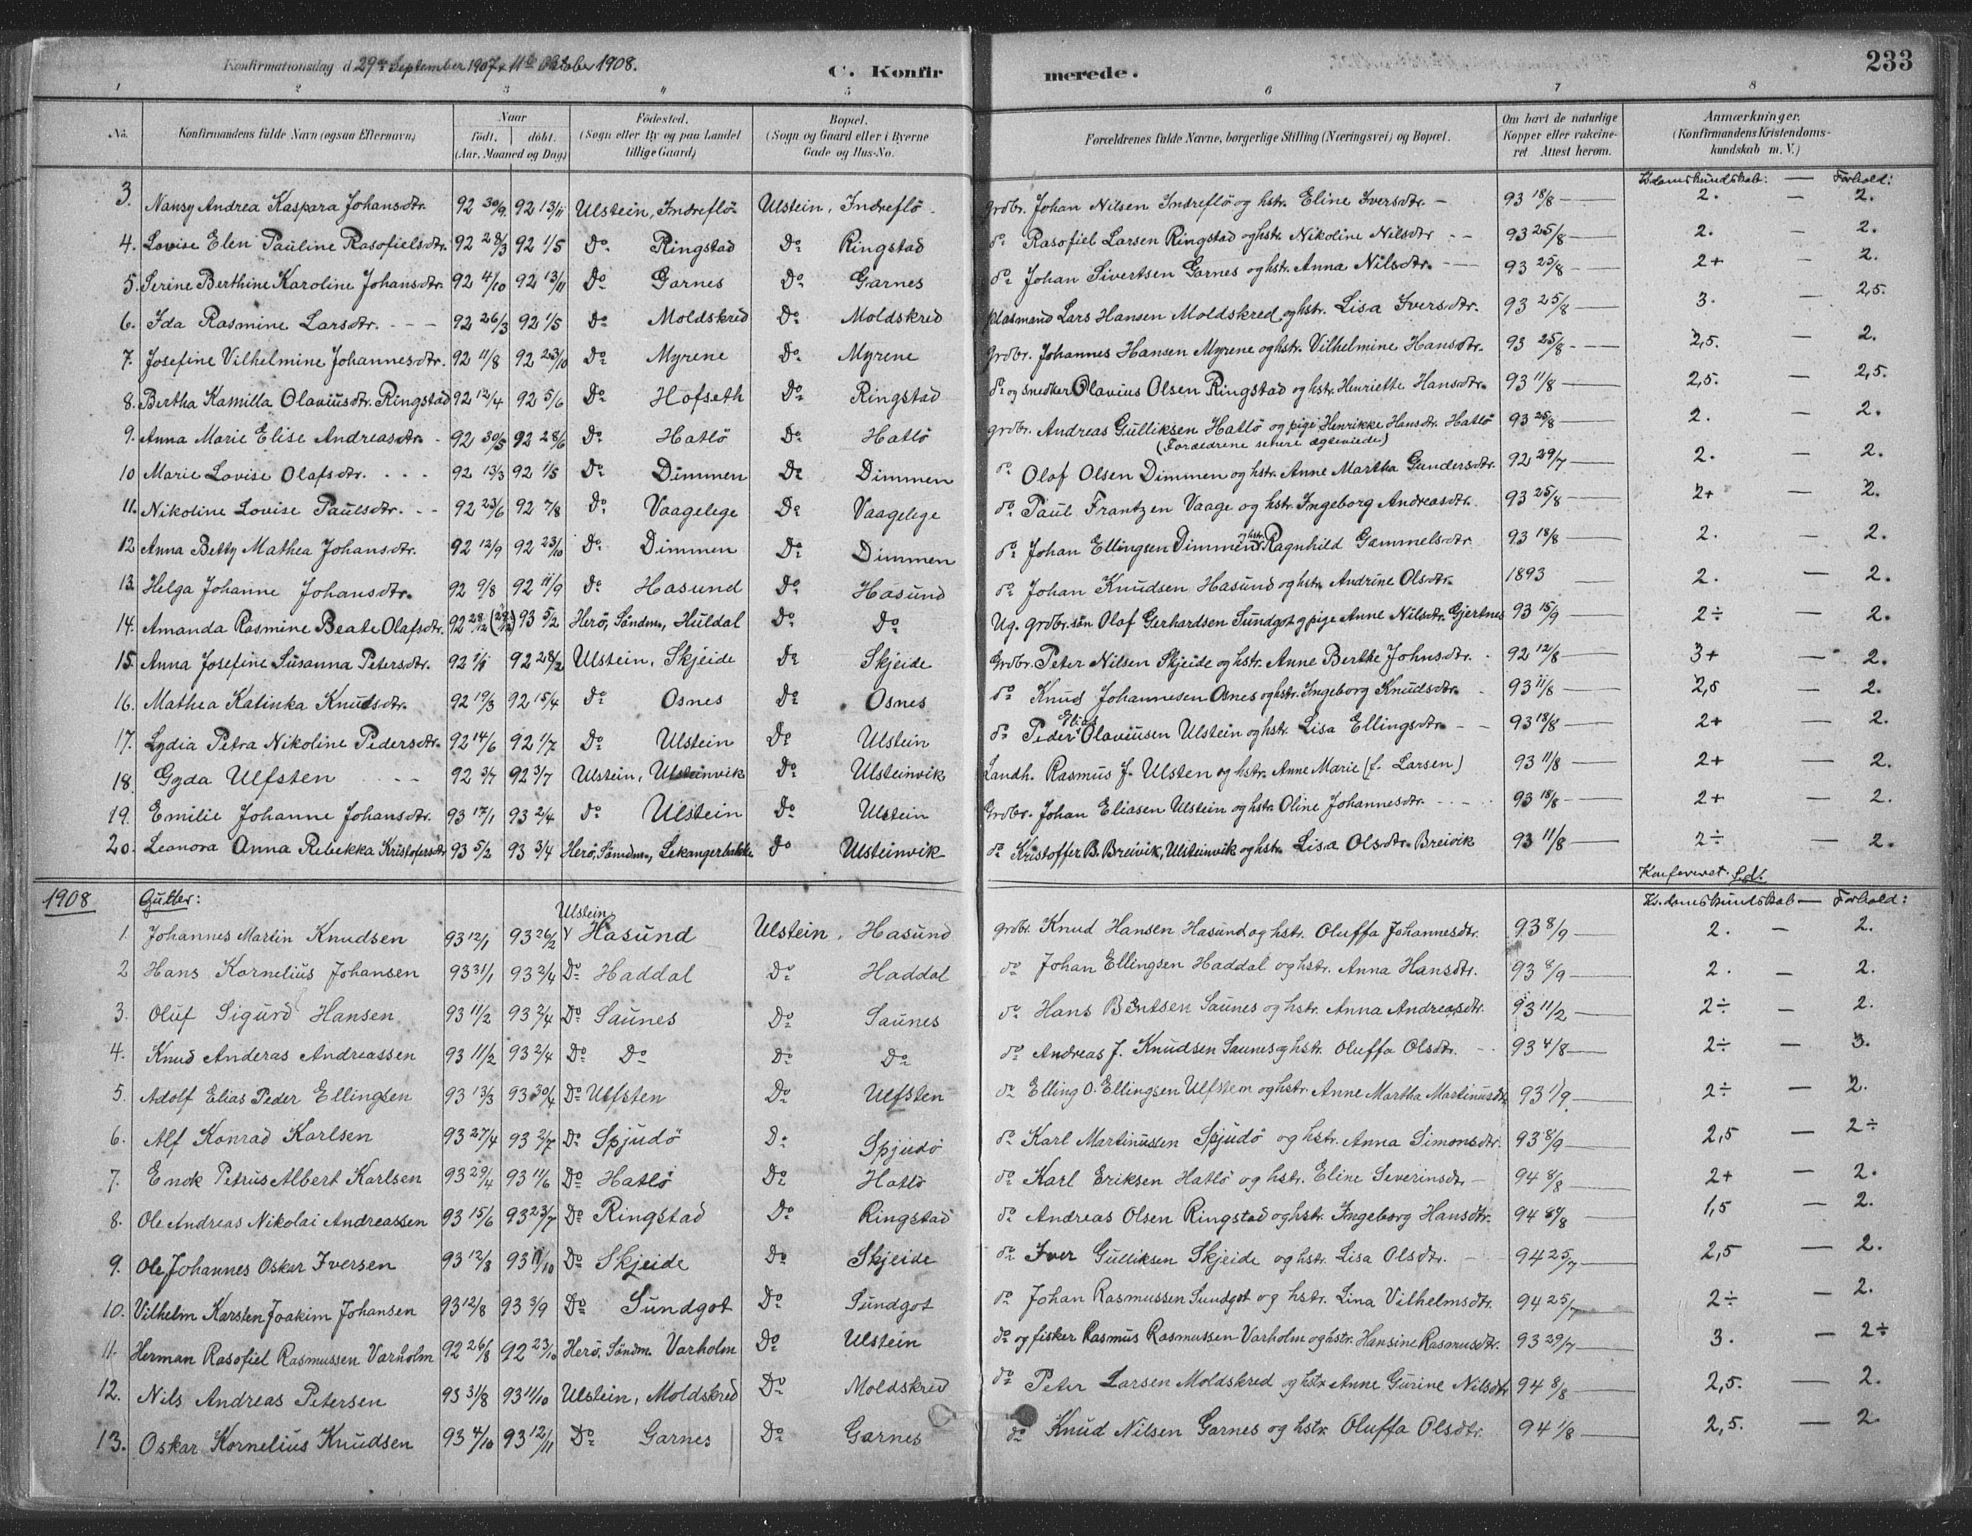 Konfirmationsdag d. 29de September 1907 & 11te Oktober 1908. C. Konfir merede. 233
1 2 3 4 5 6 7 8
No. Konfirmandens fulde Navn (ogsaa Efternavn) Naar født. døbt. (Aar, Maaned og Dag) Fødested. (Sogn eller By og paa Landet tillige Gaard) Bopæl. (Sogn og Gaard eller i Byerne Gade og Hus-No. Forældrenes fulde Navne, borgerlige Stilling (Næringsvei) og Bopæl. Om havt de naturlige Kopper eller vakcineret. Attest herom. Anmærkninger. (Konfirmandens Kristendomskundskab m. V.)
Kr.domskundskab: — Forhold:
3. Nansy Andrea Kaspara Johansdtr. 92 30/9 92 13/11 Ulstein, Indreflö Ulstein, Indreflö. grdbr. Johan Nilsen Indreflö og hstr. Eline Iversdtr. — 93 18/8 — 2. — 2.
4. Lovise Elen Pauline Rasofielsdtr. 92 28/3 92 1/5 Do Ringstad Do Ringstad do Rasofiel Larsen Ringstad og hstr. Nikoline Nilsdtr — 93 25/8 — 2. — 2.
5. Serine Berthine Karoline Johansdtr. 92 4/10 92 13/11 Do Garnes Do Garnes do Johan Sivertsen Garnes og hstr. Anna Nilsdtr. — 93 25/8 — 2+ — 2.
6. Ida Rasmine Larsdtr. 92 26/3 92 1/5 Do Moldskred Do Moldskred plasmand Lars Hansen Moldskred og hstr. Lisa Iversdtr. 93 25/8 — 3. — 2,5.
7. Josefine Vilhelmine Johannesdtr. 92 11/8 92 23/10 Do Myrene Do Myrene Grdbr. Johannes Hansen Myrene og hstr. Vilhelmine Hansdtr. 93 25/8 — 2,5. — 2.
8. Bertha Kamilla Olaviusdtr. Ringstad 92 12/4 92 5/6 Do Hofseth Do Ringstad do og snedker Olavius Olsen Ringstad og hstr. Henriette Hansdtr. 93 11/8 — 2,5. — 2,5.
9. Anna Marie Elise Andreasdtr. 92 30/5 92 28/6 Do Hatlö Do Hatlö grdbr. Andreas Gulliksen Hatlö og pige Henrikke Hansdtr. Hatlö 93 25/8 — 2. — 2.
(Forældrene senere ægteviede)
10 Marie Lovise Olafsdtr. 92 13/3 92 1/5 Do Dimmen Do Dimmen do Olaf Olsen Dimmen og hstr. Anne Martha Gundersdtr. 92 29/7 — 2. — 2.
11. Nikoline Lovise Paulsdtr. 92 23/6 92 7/8 Do Vaagelege Do Vaagelege do Paul Frantzen Vaage og hstr. Ingeborg Andreasdtr. 93 25/8 — 2+ — 2.
12 Anna Betty Mathea Johansdtr. 92 12/9 92 23/10 Do Dimmen Do Dimmen do Johan Ellingsen Dimmen og hstr. Ragnhild Gammelsdtr 93 18/8 — 2. — 2.
13. Helga Johanne Johansdtr. 92 9/8 92 11/9 do Hasund Do Hasund do Johan Knudsen Hasund og hstr. Andrine Olsdtr. 1893 2. — 2.
14. Amanda Rasmine Beate Olafsdtr. 92 28/12 93 5/2 Herö, Söndm., Huldal Do Do Ug. grdbr.sön Olaf Gerhardsen Sundgot og pige Anne Nilsdtr. Gjertnes 93 15/9 2÷ — 2.
15. Anna Josefine Susanna Petersdtr. 92 1/1 92 28/2 Ulstein, Skjeide Do Skjeide Grdbr. Peter Nilsen Skjeide og hstr. Anne Berthe Johnsdtr. 92 12/8 — 3+ — 2.
16. Mathea Katinka Knudsdtr. 92 19/3 92 15/4 do Osnes Do Osnes do Knud Johannesen Osnes og hstr. Ingeborg Knudsdtr. 93 11/8 — 2,5 — 2.
17. Lydia Petra Nikoline Pedersdtr. 92 14/6 92 1/7 Do Ulstein Do Ulstein do Peder Elias Olaviusen Ulstein og hstr. Lisa Ellingsdtr. — 93 18/8 — 2+ — 2.
18 Gyda Ulfsten 92 3/7 92 3/7 Ulstein, Ulsteinvik Do Ulsteinvik Landh. Rasmus J. Ulsten og hstr. Anne Marie (f. Larsen) 93 11/8 — 2+ — 2.
19. Emilie Johanne Johansdtr. 93 17/1 93 2/4 do Ulstein Do Ulstein Grdbr. Johan Eliasen Ulstein og hstr. Oline Johannesdtr. 93 18/8 — 2+ — 2.
20. Leonora Anna Rebekka Kristofersdtr 93 5/2 93 3/4 Herö, Söndm., Lekangerbakke do Ulsteinvik do Kristoffer B. Breivik, Ulsteinvik og hstr. Lisa Olsdtr. Breivik 93 11/8 — 2÷ — 2.
Konfereret.
1908 Gutter: Kr.domskundskab — Forhold:
1. Johannes Martin Knudsen 93 12/1 93 26/2 Ulstein, Hasund Ulstein, Hasund grdbr. Knud Hansen Hasund og hstr. Oluffa Johannesdtr. 93 8/9 — 2. — 2.
2 Hans Kornelius Johansen 93 31/1 93 2/4 Do Haddal Do Haddal do Johan Ellingsen Haddal og hstr. Anna Hansdtr. 93 8/9 — 2. — 2.
3. Oluf Sigurd Hansen 93 11/2 93 2/4 Do Saunes Do Saunes do Hans Bentsen Saunes og hstr. Anna Andreasdtr. 93 11/2 2÷ — 2.
4. Knud Anderas Andreassen 93 11/2 93 2/4 Do Do Do Do do Andreas J. Knudsen Saunes og hstr. Oluffa Olsdtr. 93 4/8 — 2÷ — 3.
5. Adolf Elias Peder Ellingsen 93 13/3 93 30/4 Do Ulfsten Do Ulfsten do Elling O. Ellingsen Ulfstein og hstr. Anne Martha Martinusdtr. 93 1/9. — 2÷ — 2.
6. Alf Konrad Karlsen 93 27/4 93 2/7 Do Spjudö Do Spjudö do Karl Martinussen Spjudö og hstr. Anna Simonsdtr. 93 8/9 — 2,5 — 2÷
7. Enok Petrus Albert Karlsen 93 29/4 93 11/6 Do Hatlö Do Hatlö do Karl Eriksen Hatlö og hstr. Eline Severinsdtr — 94 8/8 — 2+ — 2.
8. Ole Andreas Nikolai Andreassen 93 15/6 93 23/7 Do Ringstad Do Ringstad do Andreas Olsen Ringstad og hstr. Ingeborg Hansdtr. 94 8/8 — 1,5 — 2.
9. Ole Johannes Oskar Iversen 93 12/8 93 11/10 Do Skjeide Do Skjeide do Iver Gulliksen Skjeide og hstr. Lisa Olsdtr. 94 25/7 — 2,5 — 2.
10. Vilhelm Karsten Joakim Johansen 93 12/8 93 3/9 Do Sundgot Do Sundgot do Johan Rasmussen Sundgot og hstr. Lina Vilhelmsdtr. 94 25/7 — 2÷ — 2.
11. Herman Rasofiel Rasmussen Varholm 92 26/8 92 23/10 Herö, Söndm. Varholm Do Ulstein do og fisker Rasmus Rasmussen Varholm og hstr. Hansine Rasmusdtr. 93 29/7 — 3. — 2÷
12. Nils Andreas Petersen 93 31/8 93 11/10 Ulstein, Moldskred Do Moldskred do Peter Larsen Moldskred og hstr Anne Gurine Nilsdtr 94 8/8 — 2,5. — 2.
13. Oskar Kornelius Knudsen 93 4/10 93 12/11 Do Garnes Do Garnes do Knud Nilsen Garnes og hstr. Oluffa Olsdtr. 94 1/8 — 2,5. — 2.